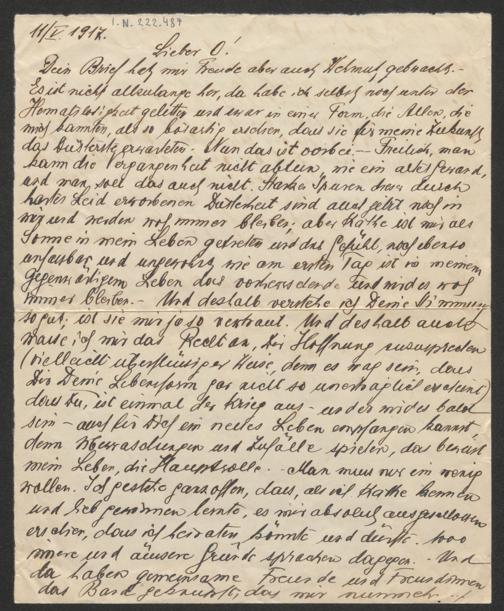 I.N. 222.484
11/V. 1917.
Lieber O!
Dein Brief hat mir Freude aber auch Wehmut gebracht. –
Es ist nicht allzulange her, da habe ich selbst noch unter der
Heimatlosigkeit gelitten und zwar in einer Form, die Allen, die
mich kannten, als so bösartig erschien, dass sie für meine Zukunft
das Düsterste erwarteten. Nun das ist vorbei – Freilich, man
kann die Vergangenheit nicht abtun, wie ein altes Gewand,
und man soll das auch nicht. Starke Spuren dieser durch
hartes Leid erworbenen Düsterheit sind auch jetzt noch in
mir und werden wohl immer bleiben; aber Käthe ist mir als
Sonne in mein Leben getreten und das Gefühl, noch ebenso
unfassbar und ungewohnt wie am ersten Tag ist in meinem
gegenwärtigen Leben das vorherrschende und wird es wohl
immer bleiben. – Und deshalb verstehe ich Deine Stimmung
so gut, ist sie mir ja so vertraut. Und deshalb auch
masse ich mir das Recht an, Dir Hoffnung zuzusprechen
(vielleicht überflüssiger Weise, denn es mag sein, dass
Dir Deine Lebensform gar nicht so unerträglich erscheint)
dass Du, ist einmal der Krieg aus – und er wird es bald
sein – auch für Dich ein neues Leben empfangen kannst
denn Überraschungen und Zufälle spielen, das beweist
mein Leben, die Hauptrolle. – Man muss nur ein wenig
wollen. Ich gestehe ganz offen, dass, als ich Käthe kennen
und lieb gewinnen lernte, es mir absolut ausgeschlossen
erschien, dass ich heiraten könnte und dürfte. 1000
innere und äussere Gründe sprachen dagegen. – Und
da haben gemeinsame Freunde und Freundinnen
das Band geknüpft, das mir nunmehr